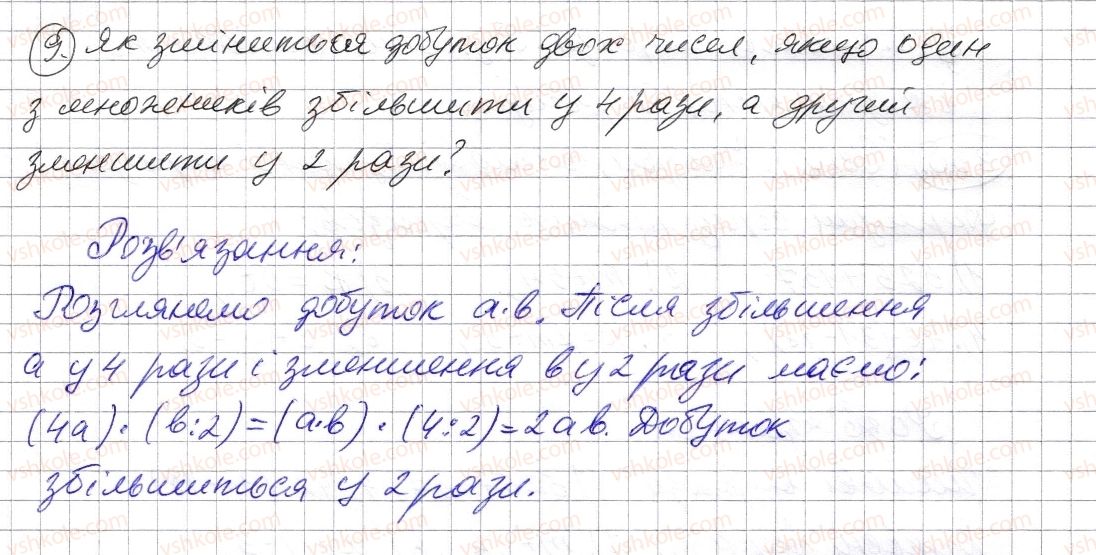 9. Як зміниться добуток двох чисел, якщо один
з множників збільшити у 4 рази, а другий
зменшити у 2 рази?
Розв'язання:
Розглянемо добуток а·в. Після збільшення
а у 4 рази і зменшення в у 2 рази маємо:
(4а)·(в:2)=(а·в)·(4:2)=2ав. Добуток
збільшиться у 2 рази.